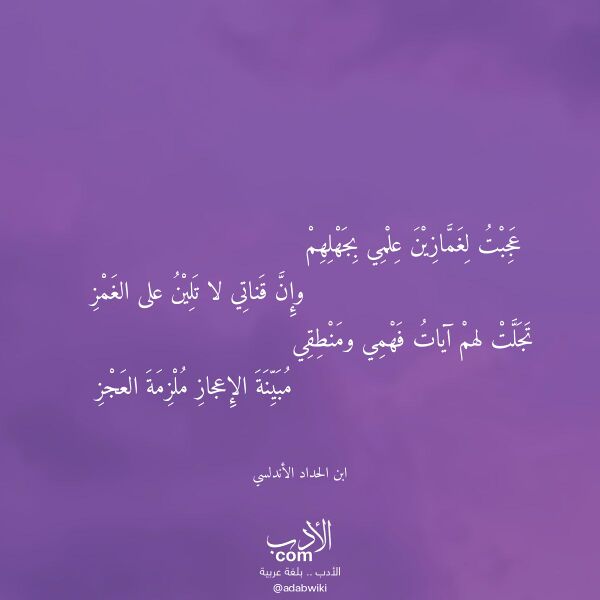 عَجِبْتُ لِغَمَّازِيْنَ عِلْمِي بِجَهْلِهِمْ
وإِنَّ قَناتِي لا تَلِيْنُ على الغَمْزِ
تَجَلَّتْ لهمْ آياتُ فَهْمِي ومَنْطِقِي
مُبَيِّنَةَ الإِعجازِ مُلْزِمَةَ العَجْزِ
ابن الحداد الأندلسي
الأدب
com
الأدب .. بلغة عربية
@adabwiki